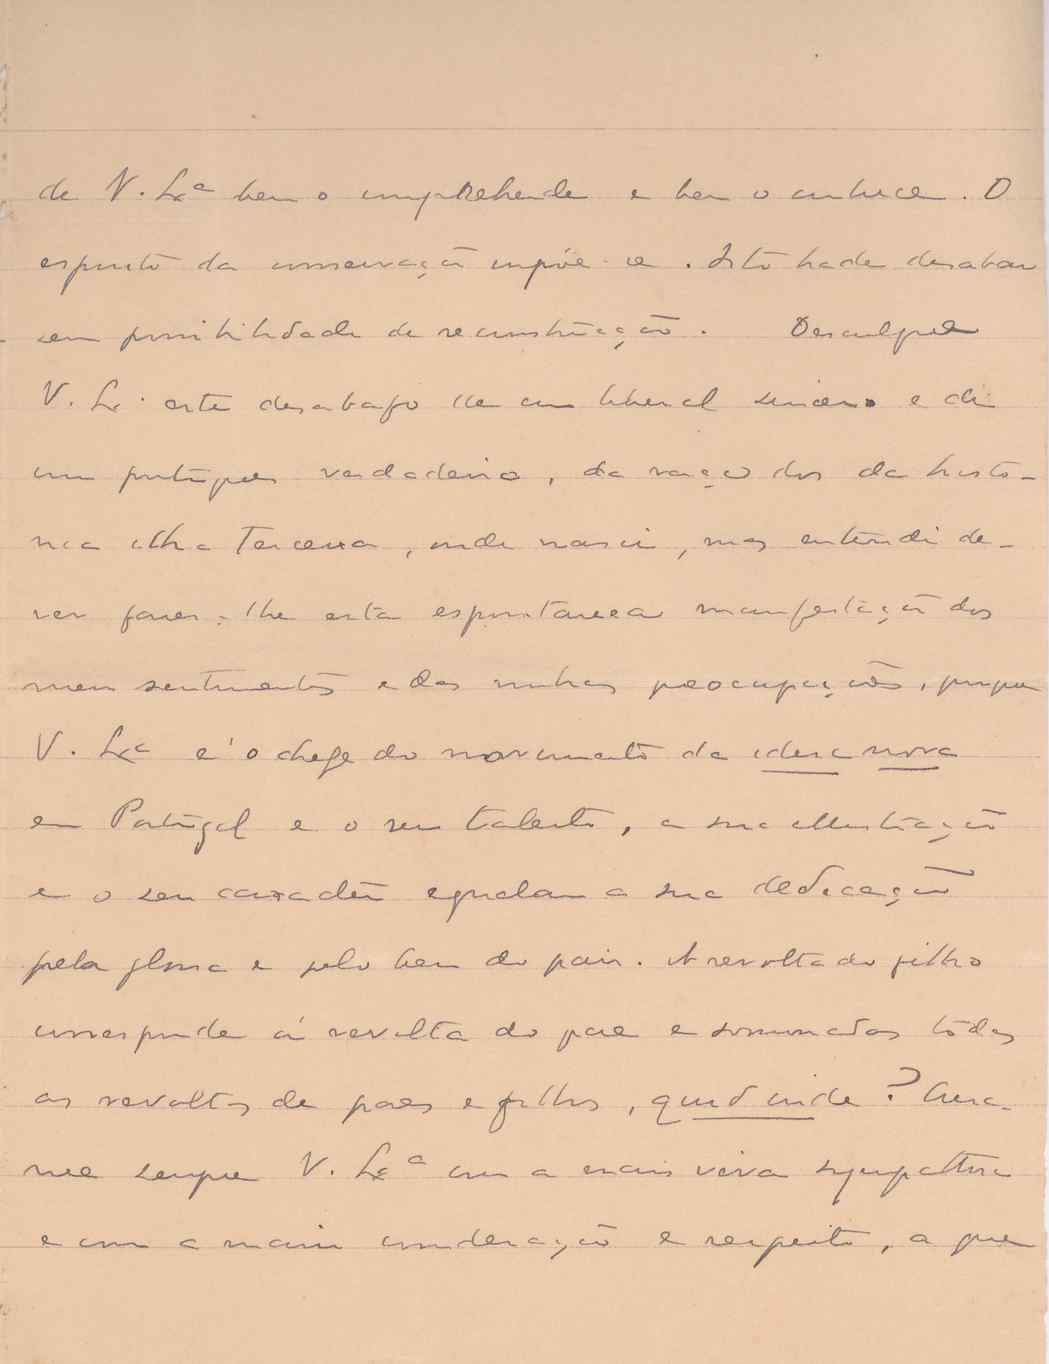 de V. Exª bem o comprehende e bem o conhece. O
espirito da conservação impõe-se. Isto hade desabar
sem possibilidade de reconstrucção. Desculpe
V. Ex. este desabafo de um liberal sincero e de
um portuguez verdadeiro, da raça dos da histo-
rica ilha Terceira, onde nasci, mas entendi de-
ver fazer-lhe esta espontanea manifestação dos
meus sentimentos e das minhas preocupações, porque
V. Exª é o chefe do movimento da idea nova
em Portugal e o seu talento, a sua illustração
e o seu caracter egualam a sua dedicação
pela gloria e pelo bem do paiz. A revolta do filho
corresponde á revolta do pae e sommadas todas
as revoltas de paes e filhos, quid inde? Creia-
me sempre V. Exª com a mais viva sympathia
e com a maior consideração e respeito, a que